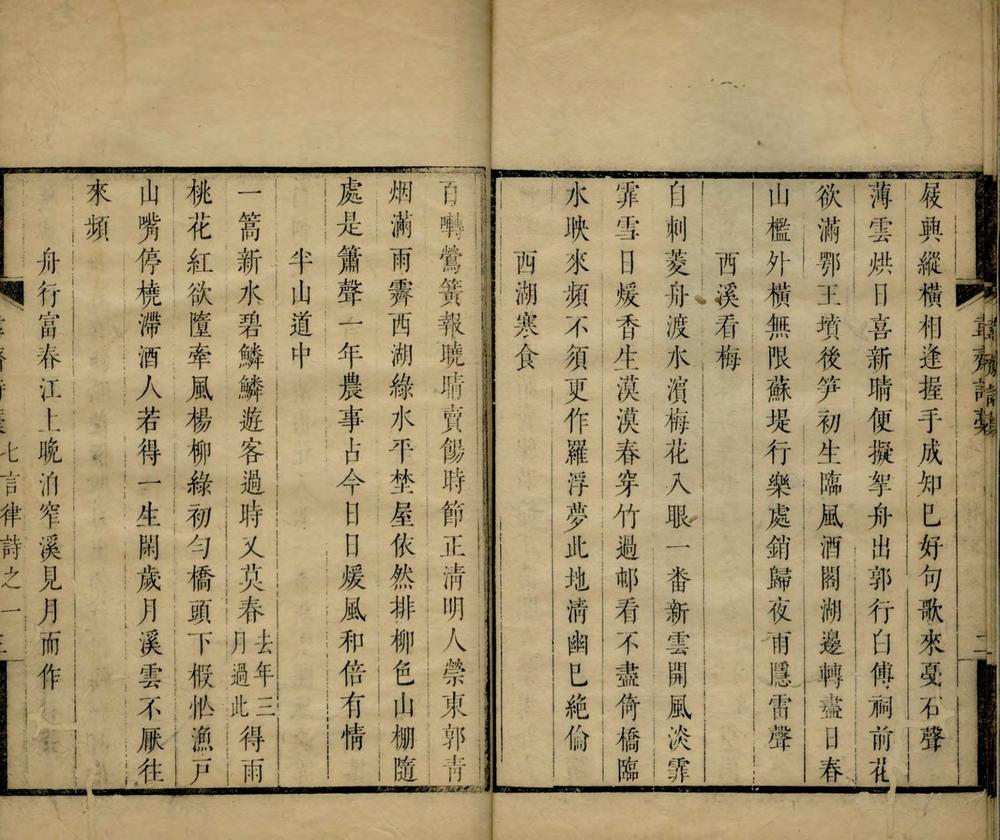 屐興縱橫相逢握手成知巳好句歌來戛石聲
薄雲烘日喜新晴便擬挐舟出郭行白傅祠前花
欲滿鄂王墳後笋初生臨風酒閣湖邊轉盡日春
山檻外橫無限蘇堤行樂處銷歸夜雨隱雷聲
西溪看梅
自刺菱舟渡水濵梅花入眼一番新雲開風淡霏
霏雪日煖香生漠漠春穿竹過邨看不盡倚橋臨
水映來頻不須更作羅浮夢此地清幽巳絶倫
西湖寒食
百囀鶯簧報曉晴賣餳時節正清明人縈東郭青
烟滿雨霽西湖綠水平埜屋依然排柳色山棚隨
處是簫聲一年農事占今日日煖風和倍有情
半山道中
一篙新水碧鱗鱗遊客過時又莫春去年三月過此得雨
桃花紅欲墮牽風楊柳綠初勻橋頭下椴怭漁戶
山嘴停橈滯酒人若得一生閑歲月溪雲不厭往
來頻
舟行富春江上晚泊窄溪見月而作
七言律詩之一
三
二